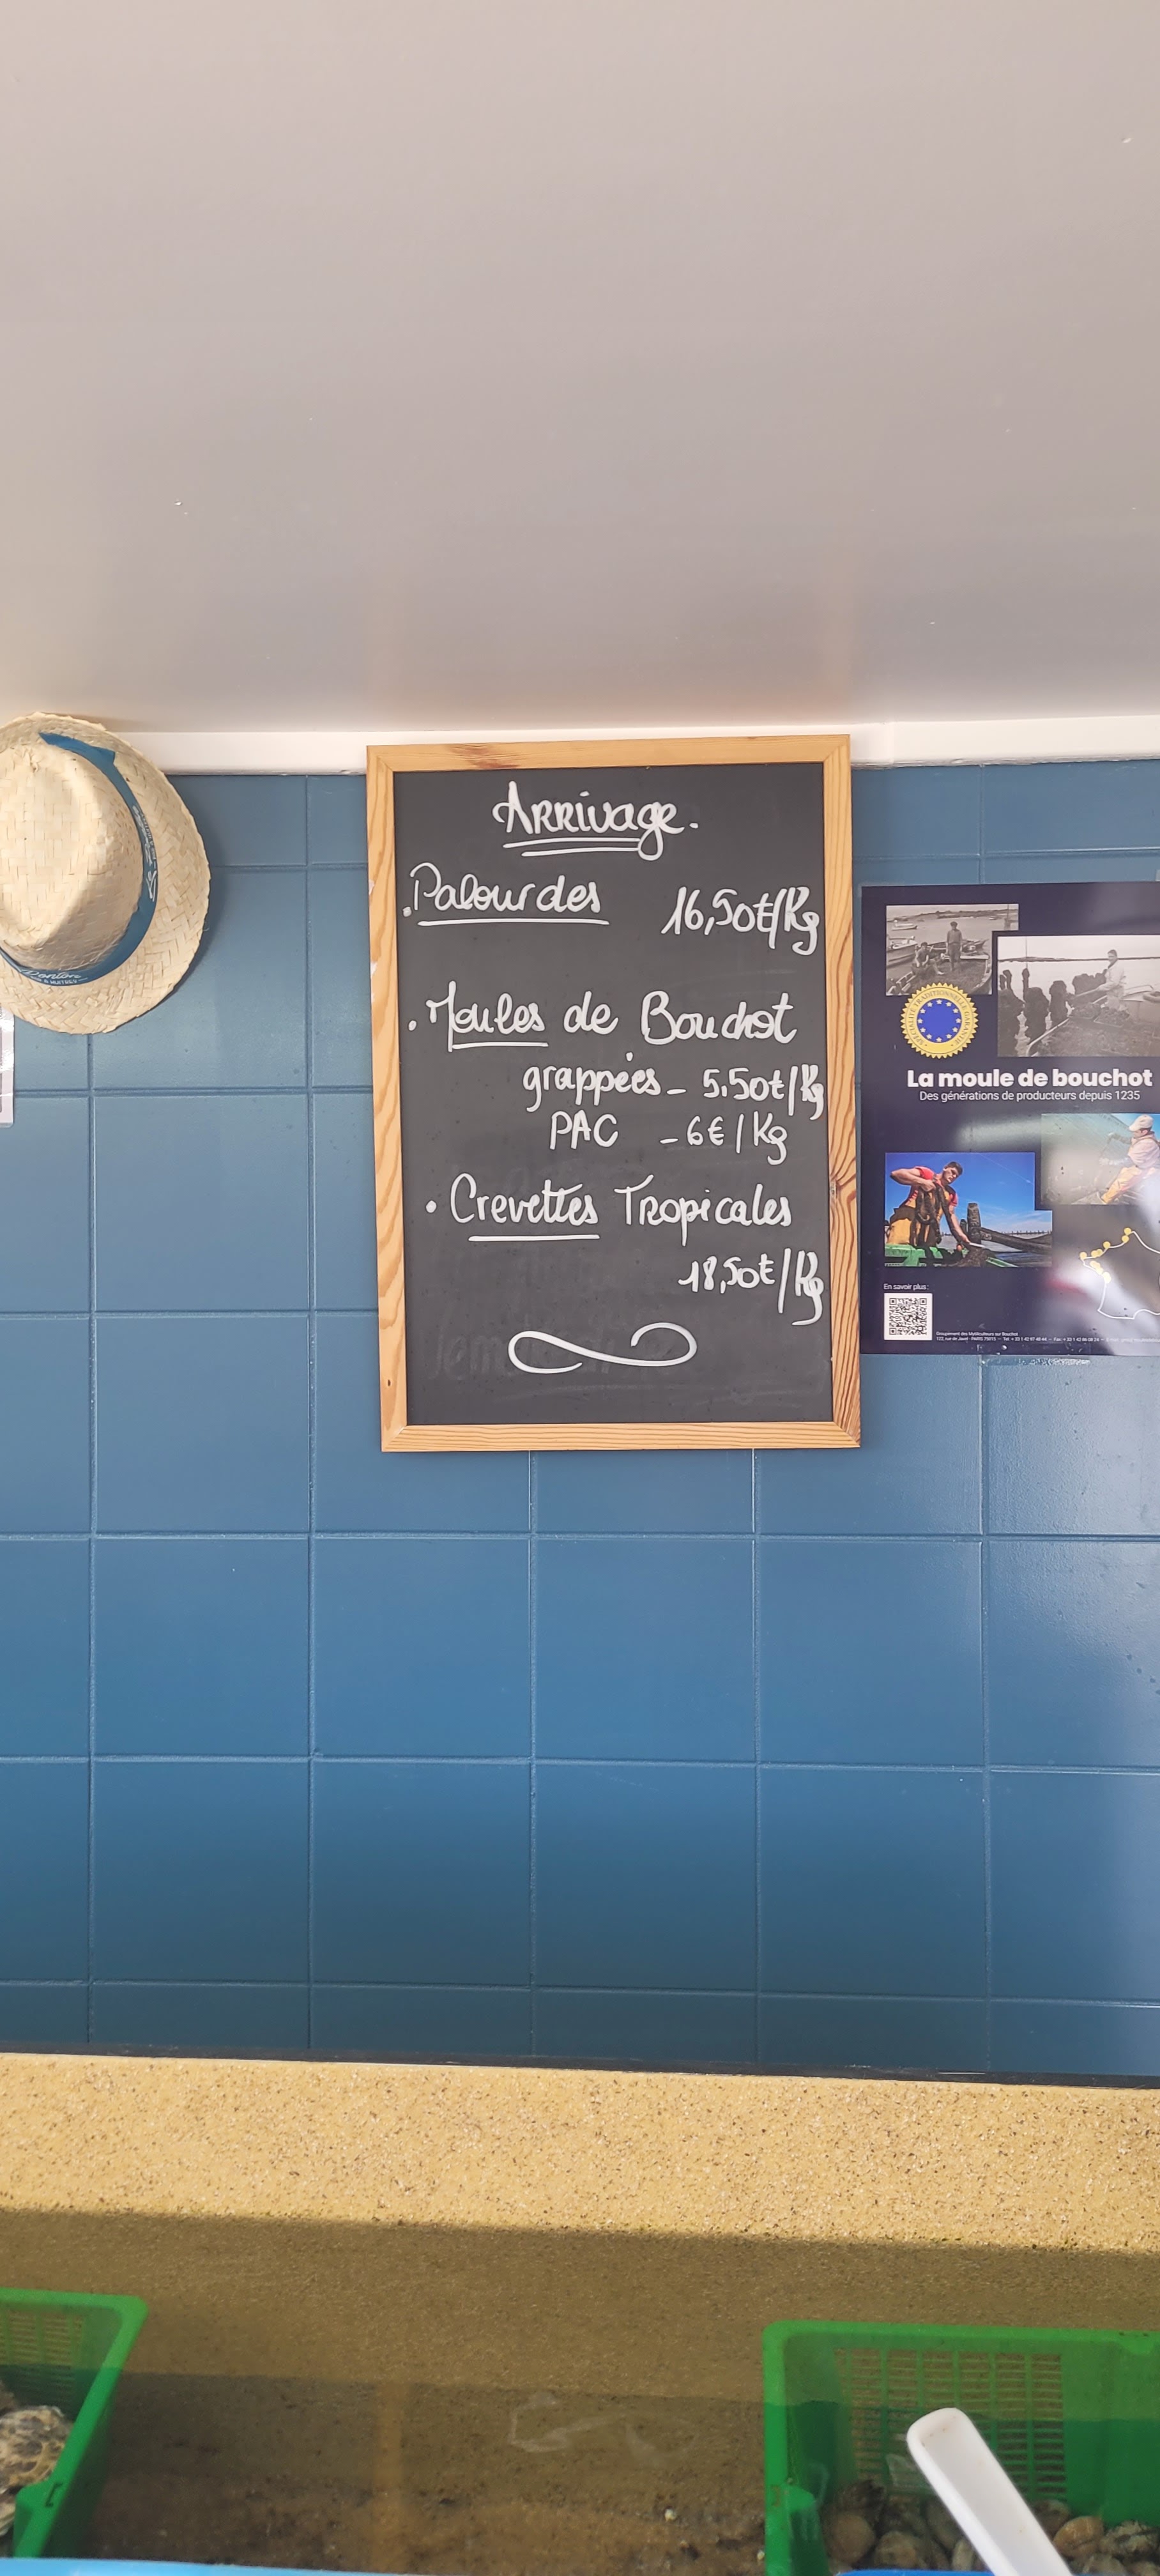 Arrivage.
. Palourdes 16,50€/Kg
. Moules de Bouchot
grappées - 5,50€/Kg
PAC - 6€/Kg
• Crevettes Tropicales
18,50€/Kg
SPÉCIALITÉ TRADITIONNELLE GARANTIE
La moule de bouchot
Des générations de producteurs depuis 1235
En savoir plus :
Groupement des Mytiliculteurs sur Bouchot